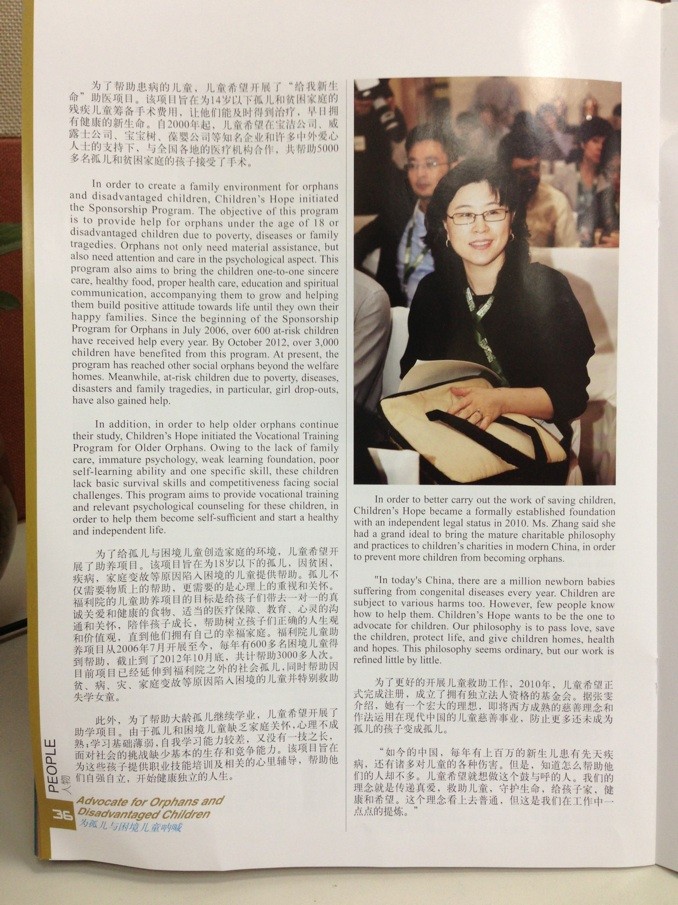 为了帮助患病的儿童，儿童希望开展了“给我新生
命”助医项目。该项目旨在为14岁以下孤儿和贫困家庭的
残疾儿童筹备手术费用，让他们能及时得到治疗，早日拥
有健康的新生命。自2000年起，儿童希望在宝洁公司、威
露士公司、宝宝树、葆婴公司等知名企业和许多中外爱心
人士的支持下，与全国各地的医疗机构合作，共帮助5000
多名孤儿和贫困家庭的孩子接受了手术。
In order to create a family environment for orphans
and disadvantaged children, Children's Hope initiated
the Sponsorship Program. The objective of this program
is to provide help for orphans under the age of 18 or
disadvantaged children due to poverty, diseases or family
tragedies. Orphans not only need material assistance, but
also need attention and care in the psychological aspect. This
program also aims to bring the children one-to-one sincere
care, healthy food, proper health care, education and spiritual
communication, accompanying them to grow and helping
them build positive attitude towards life until they own their
happy families. Since the beginning of the Sponsorship
Program for Orphans in July 2006, over 600 at-risk children
have received help every year. By October 2012, over 3,000
children have benefited from this program. At present, the
program has reached other social orphans beyond the welfare
homes. Meanwhile, at-risk children due to poverty, diseases,
disasters and family tragedies, in particular, girl drop-outs,
have also gained help.
In addition, in order to help older orphans continue
their study, Children's Hope initiated the Vocational Training
Program for Older Orphans. Owing to the lack of family
care, immature psychology, weak learning foundation, poor
self-learning ability and one specific skill, these children
lack basic survival skills and competitiveness facing social
challenges. This program aims to provide vocational training
and relevant psychological counseling for these children, in
order to help them become self-sufficient and start a healthy
and independent life.
为了给孤儿与困境儿童创造家庭的环境，儿童希望开
展了助养项目。该项目旨在为18岁以下的孤儿，因贫困，
疾病，家庭变故等原因陷入困境的儿童提供帮助。孤儿不
仅需要物质上的帮助，更需要的是心理上的重视和关怀。
福利院的儿童助养项目的目标是给孩子们带去一对一的真
诚关爱和健康的食物、适当的医疗保障、教育、心灵的沟
通和关怀，陪伴孩子成长，帮助树立孩子们正确的人生观
和价值观，直到他们拥有自己的幸福家庭。福利院儿童助
养项目从2006年7月开展至今，每年有600多名困境儿童得
到帮助，截止到了2012年10月底，共计帮助3000多人次。
目前项目已经延伸到福利院之外的社会孤儿,同时帮助因
贫、病、灾、家庭变故等原因陷入困境的儿童并特别救助
失学女童。
此外，为了帮助大龄孤儿继续学业，儿童希望开展了
助学项目。由于孤儿和困境儿童缺乏家庭关怀,心理不成
熟,学习基础薄弱,自我学习能力较差，又没有一技之长，
面对社会的挑战缺少基本的生存和竞争能力。该项目旨在
为这些孩子提供职业技能培训及相关的心里辅导，帮助他
们自强自立，开始健康独立的人生。
In order to better carry out the work of saving children,
Children's Hope became a formally established foundation
with an independent legal status in 2010. Ms. Zhang said she
had a grand ideal to bring the mature charitable philosophy
and practices to children's charities in modern China, in order
to prevent more children from becoming orphans.
"In today's China, there are a million newborn babies
suffering from congenital diseases every year. Children are
subject to various harms too. However, few people know
how to help them. Children's Hope wants to be the one to
advocate for children. Our philosophy is to pass love, save
the children, protect life, and give children homes, health
and hopes. This philosophy seems ordinary, but our work is
refined little by little.
为了更好的开展儿童救助工作，2010年，儿童希望正
式完成注册，成立了拥有独立法人资格的基金会。据张雯
介绍，她有一个宏大的理想，即将西方成熟的慈善理念和
作法运用在现代中国的儿童慈善事业，防止更多还未成为
孤儿的孩子变成孤儿。
“如今的中国，每年有上百万的新生儿患有先天疾
病，还有诸多对儿童的各种伤害。但是，知道怎么帮助他
们的人却不多。儿童希望就想做这个鼓与呼的人。我们的
理念就是传递真爱，救助儿童，守护生命，给孩子家，健
康和希望。这个理念看上去普通，但这是我们在工作中一
点点的提炼。”
PEOPLE
人物
36
Advocate for Orphans and
Disadvantaged Children
为孤儿与困境儿童呐喊